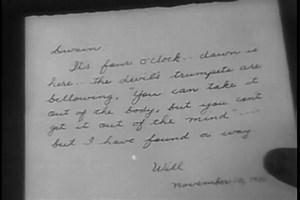 Swain
It's four o'clock... dawn is
here... the devil's trumpets are
bellowing, "You can take it
out of the body, but you can't
get it out of the mind"....
but I have found a way
Will
November